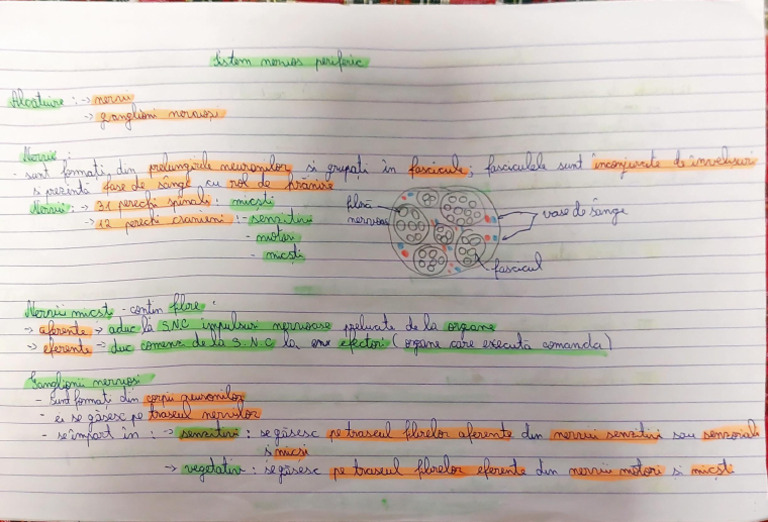 Sistem nervos periferic
Alcătuire : → nervi
→ ganglioni nervoși
Nervii
- sunt formați din prelungirile neuronilor și grupați în fascicule; fasciculele sunt înconjurate de învelișuri
și prezintă vase de sânge cu rol de hrănire
Nervii : → 31 perechi spinali : micști
→ 12 perechi cranieni : - senzitivi
- motori
- micști
fibră
nervoasă
vase de sânge
fascicul
Nervii micști - conțin fibre :
→ aferente → aduc la S.N.C impulsuri nervoase preluate de la organe
→ eferente → duc comenzi de la S.N.C la efectori (organe care execută comanda)
Ganglionii nervoși
- Sunt formați din corpii neuronilor
- ei se găsesc pe traseul nervilor
- se împart în : → senzitivi : se găsesc pe traseul fibrelor aferente din nervii senzitivi sau senzoriali
și micști
→ vegetativi : se găsesc pe traseul fibrelor eferente din nervii motori și micști